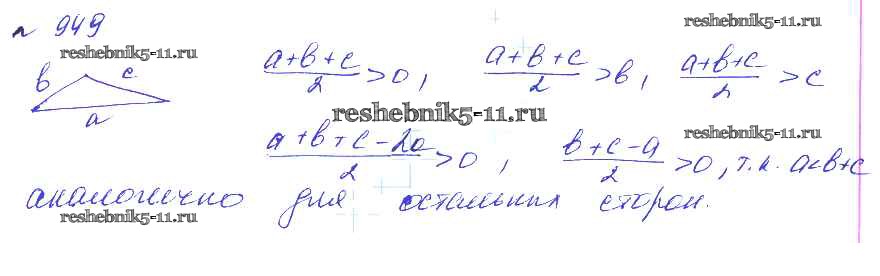 № 949
reshebnik5-11.ru
reshebnik5-11.ru
в c a
(a+в+c)/2 > 0, (a+в+c)/2 > в, (a+в+c)/2 > c
reshebnik5-11.ru
reshebnik5-11.ru
(a+в+c-2a)/2 > 0, (в+c-a)/2 > 0, т.к. a<в+c
аналогично для остальных сторон.
reshebnik5-11.ru
reshebnik5-11.ru